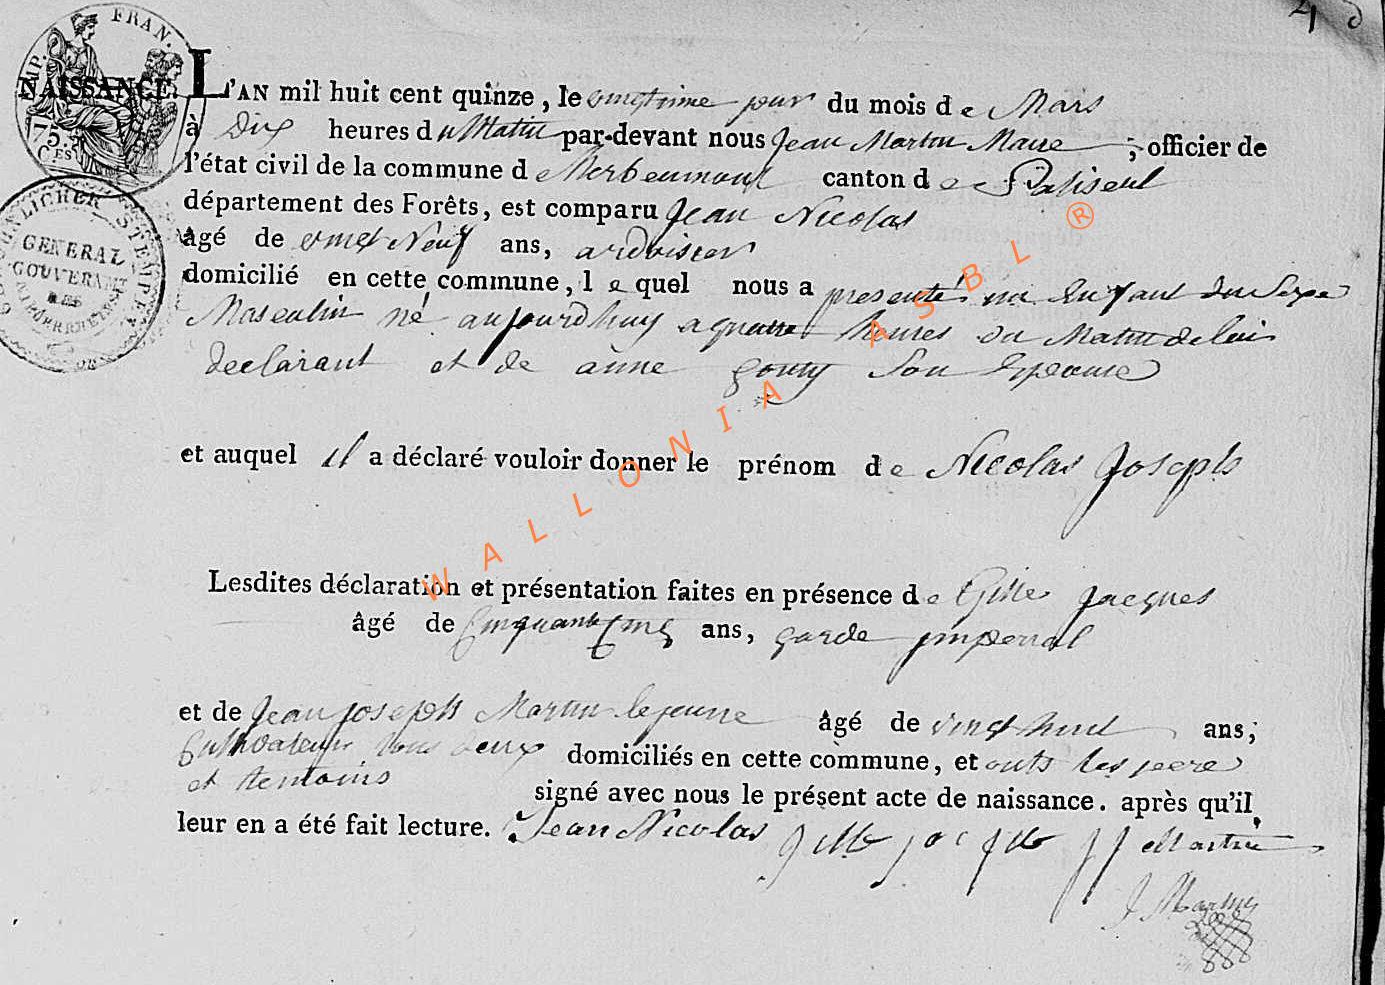 4
IMP. FRAN.
75.
CES
NAISSANCE. L'AN mil huit cent quinze, le vingtieme jour du mois de Mars
à Dix heures du Matin par-devant nous Jean Martin Maire, officier de
l'état civil de la commune de Herbeumont canton de Paliseul
département des Forêts, est comparu Jean Nicolas
âgé de vingt Neuf ans, ardoisier
domicilié en cette commune, lequel nous a presenté un Enfant du Sexe
Masculin né aujourdhuy a quatre heures du Matin de lui
declarant et de anne goury Son Epouse
GENERAL
GOUVERNEMENT
STEMPEL
et auquel il a déclaré vouloir donner le prénom de Nicolas Joseph
Lesdites déclaration et présentation faites en présence de Gille Jacques
âgé de Cinquante Cinq ans, garde imperial
et de Jean joseph Martin lejeune âgé de vingt huit ans;
Cultivateur tous deux domiciliés en cette commune, et onts les pere
et temoins signé avec nous le présent acte de naissance. après qu'il
leur en a été fait lecture. Jean Nicolas jille jacque J J Martin
J Martin
WALLONIA ASBL ®